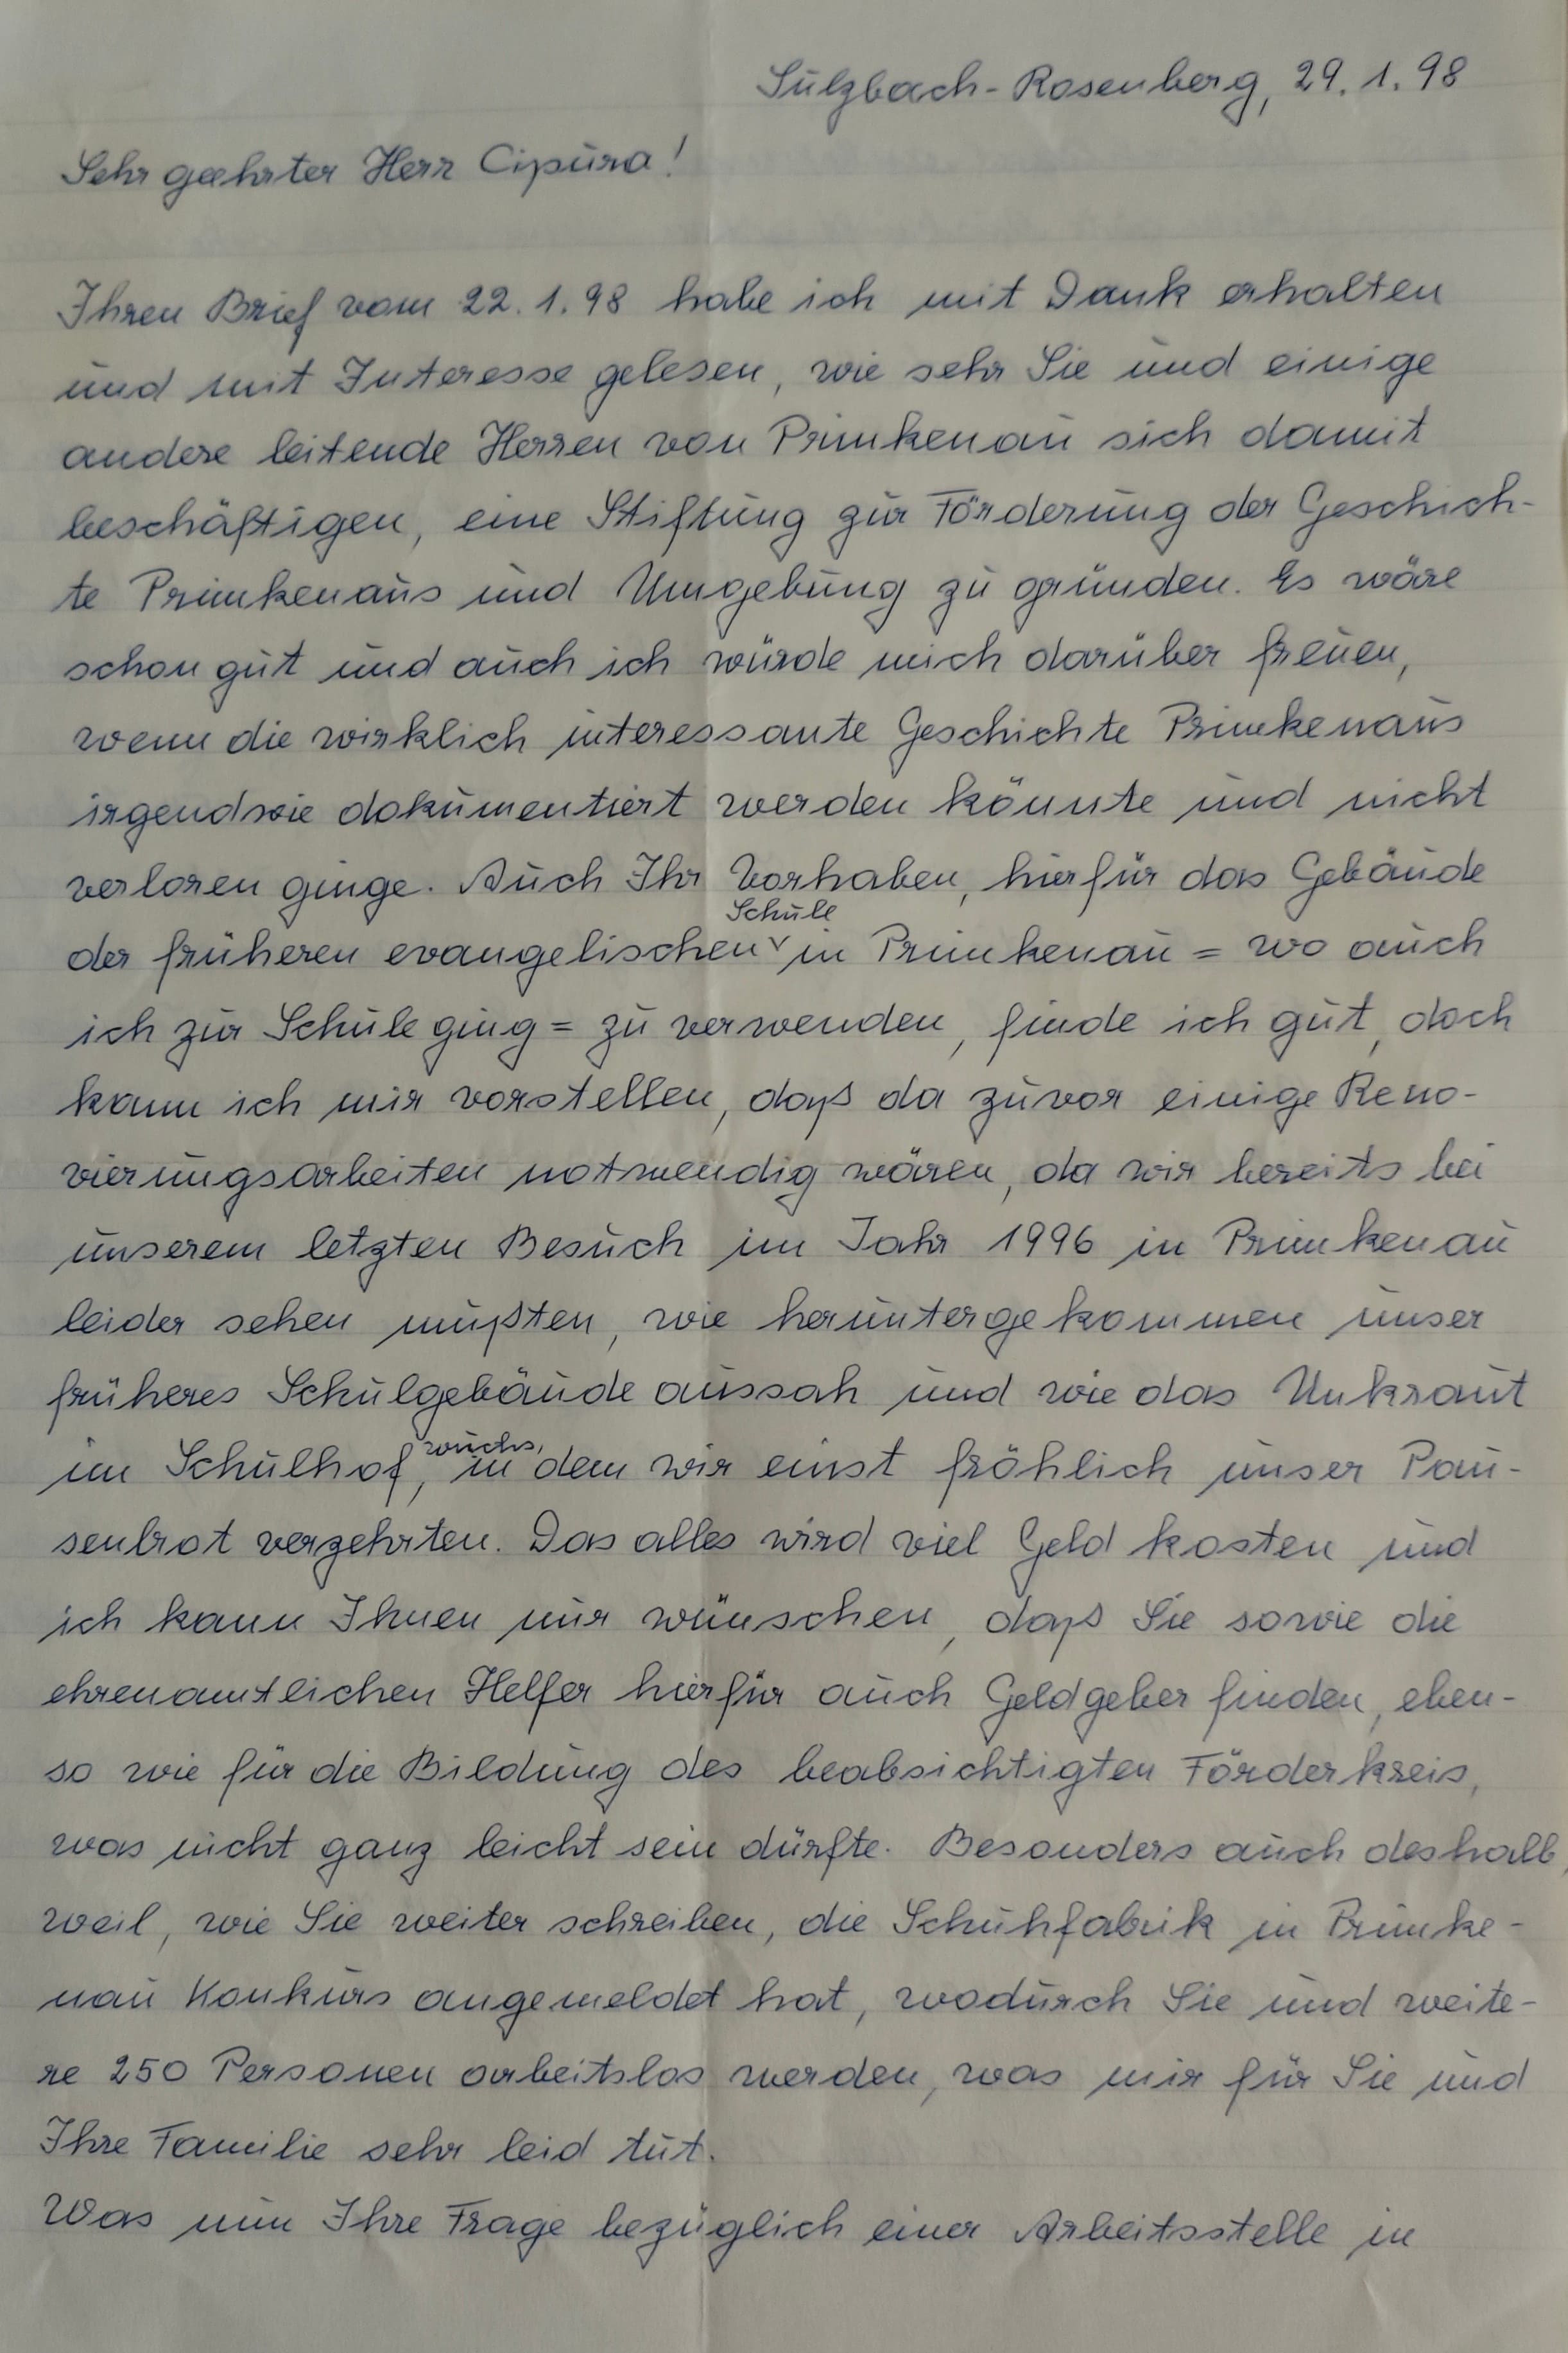 Sulzbach-Rosenberg, 29.1.98
Sehr geehrter Herr Cipura!
Ihren Brief vom 22.1.98 habe ich mit Dank erhalten
und mit Interesse gelesen, wie sehr Sie und einige
andere leitende Herren von Primkenau sich damit
beschäftigen, eine Stiftung zur Förderung der Geschich-
te Primkenaus und Umgebung zu gründen. Es wäre
schon gut und auch ich würde mich darüber freuen,
wenn die wirklich interessante Geschichte Primkenaus
irgendwie dokumentiert werden könnte und nicht
verloren ginge. Auch Ihr Vorhaben, hierfür das Gebäude
Schule
der früheren evangelischen ˅ in Primkenau = wo auch
ich zur Schule ging = zu verwenden, finde ich gut, doch
kann ich mir vorstellen, daß da zuvor einige Reno-
vierungsarbeiten notwendig wären, da wir bereits bei
unserem letzten Besuch im Jahr 1996 in Primkenau
leider sehen mußten, wie heruntergekommen unser
früheres Schulgebäude aussah und wie das Unkraut
wuchs,
im Schulhof, in dem wir einst fröhlich unser Pau-
senbrot verzehrten. Das alles wird viel Geld kosten und
ich kann Ihnen nur wünschen, daß Sie sowie die
ehrenamtlichen Helfer hierfür auch Geldgeber finden, eben-
so wie für die Bildung des beabsichtigten Förderkreis,
was nicht ganz leicht sein dürfte. Besonders auch deshalb,
weil, wie Sie weiter schreiben, die Schuhfabrik in Primke-
nau Konkurs angemeldet hat, wodurch Sie und weite-
re 250 Personen arbeitslos werden, was mir für Sie und
Ihre Familie sehr leid tut.
Was nun Ihre Frage bezüglich einer Arbeitsstelle in